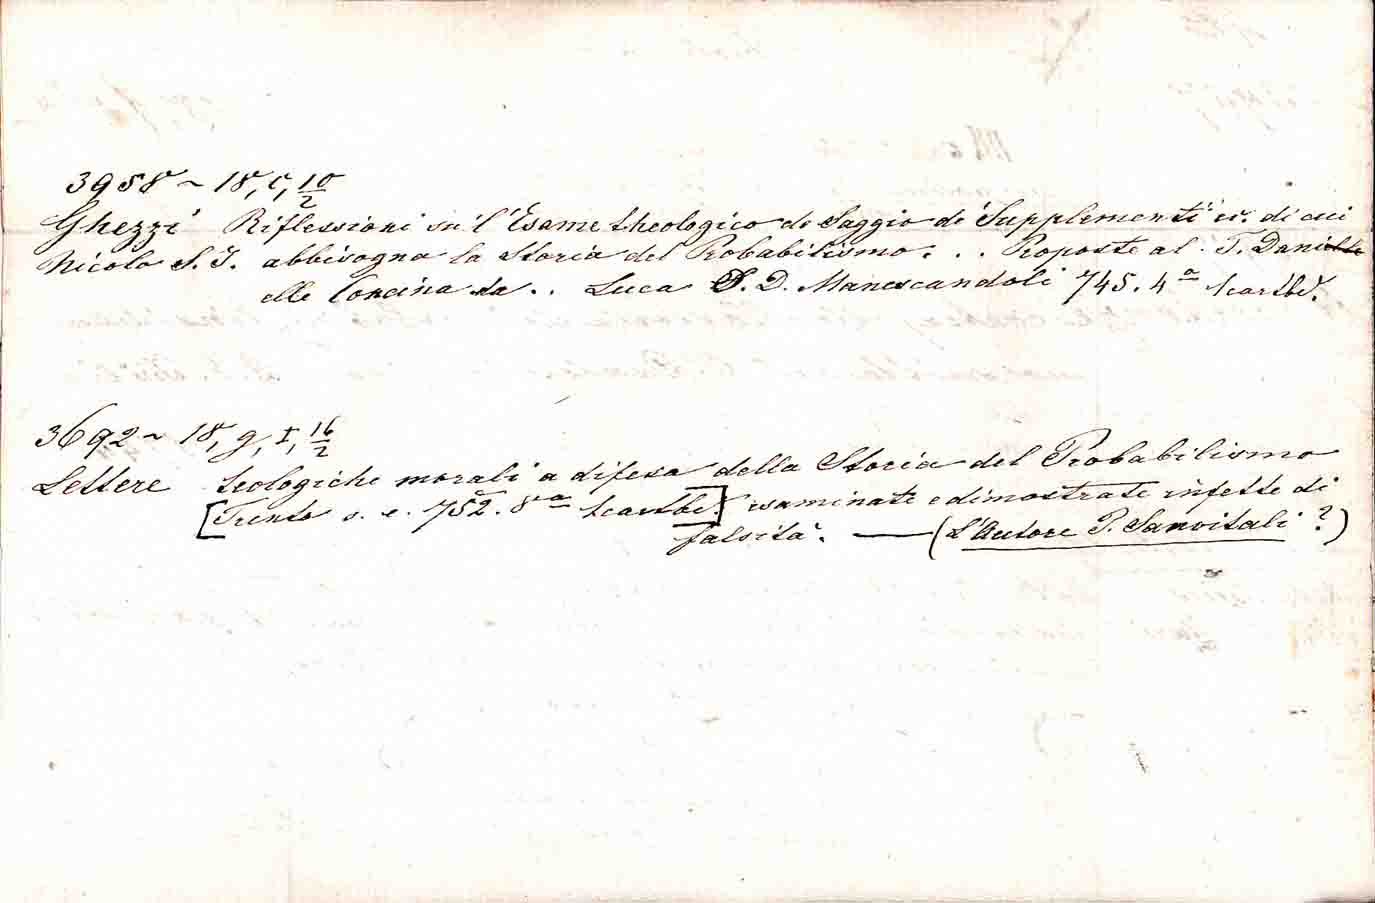 3958 ~ 18, c, 10/2
Ghezzi Riflessioni su l'Esame theologico do Saggio di Supplementi ec. di cui
Nicolo S. J. abbisogna la Storia del Probabilismo . . . Proposte al P. Dani
elle Concina da . . Luca S. D. Manescandoli 745. 4a
3692 ~ 18, g, I, 16/2
Lettere teologiche morali a difesa della Storia del Probabilismo
[Trento s. e. 752. 8a esaminate e dimostrate infette di
falsità. — (L'Autore P. Sanvitali?)